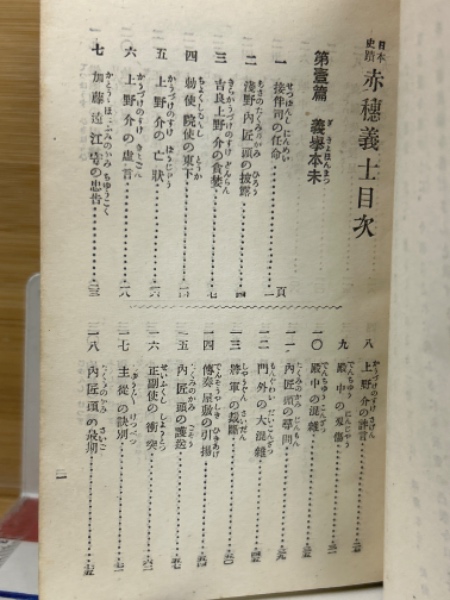 日本史蹟 赤穗義士目次
第壹篇 義擧本末
一 接伴司の任命 一頁
二 淺野內匠頭の披露 四
三 吉良上野介の貪婪 七
四 勅使院使の東下
五 上野介の亡狀
六 上野介の虛言 一八
七 加藤遠江守の忠告
八 上野介の
九 殿中の刃傷
一〇 殿中の混雜
一一 內匠頭の尋問
一二 門外の大混雜
一三 將軍の裁斷 五〇
一四 傳奏屋敷の引揚 五四
一五 內匠頭の護送 五七
一六 正副使の衝突 六二
一七 主從の訣別 七一
一八 內匠頭の最期 七五